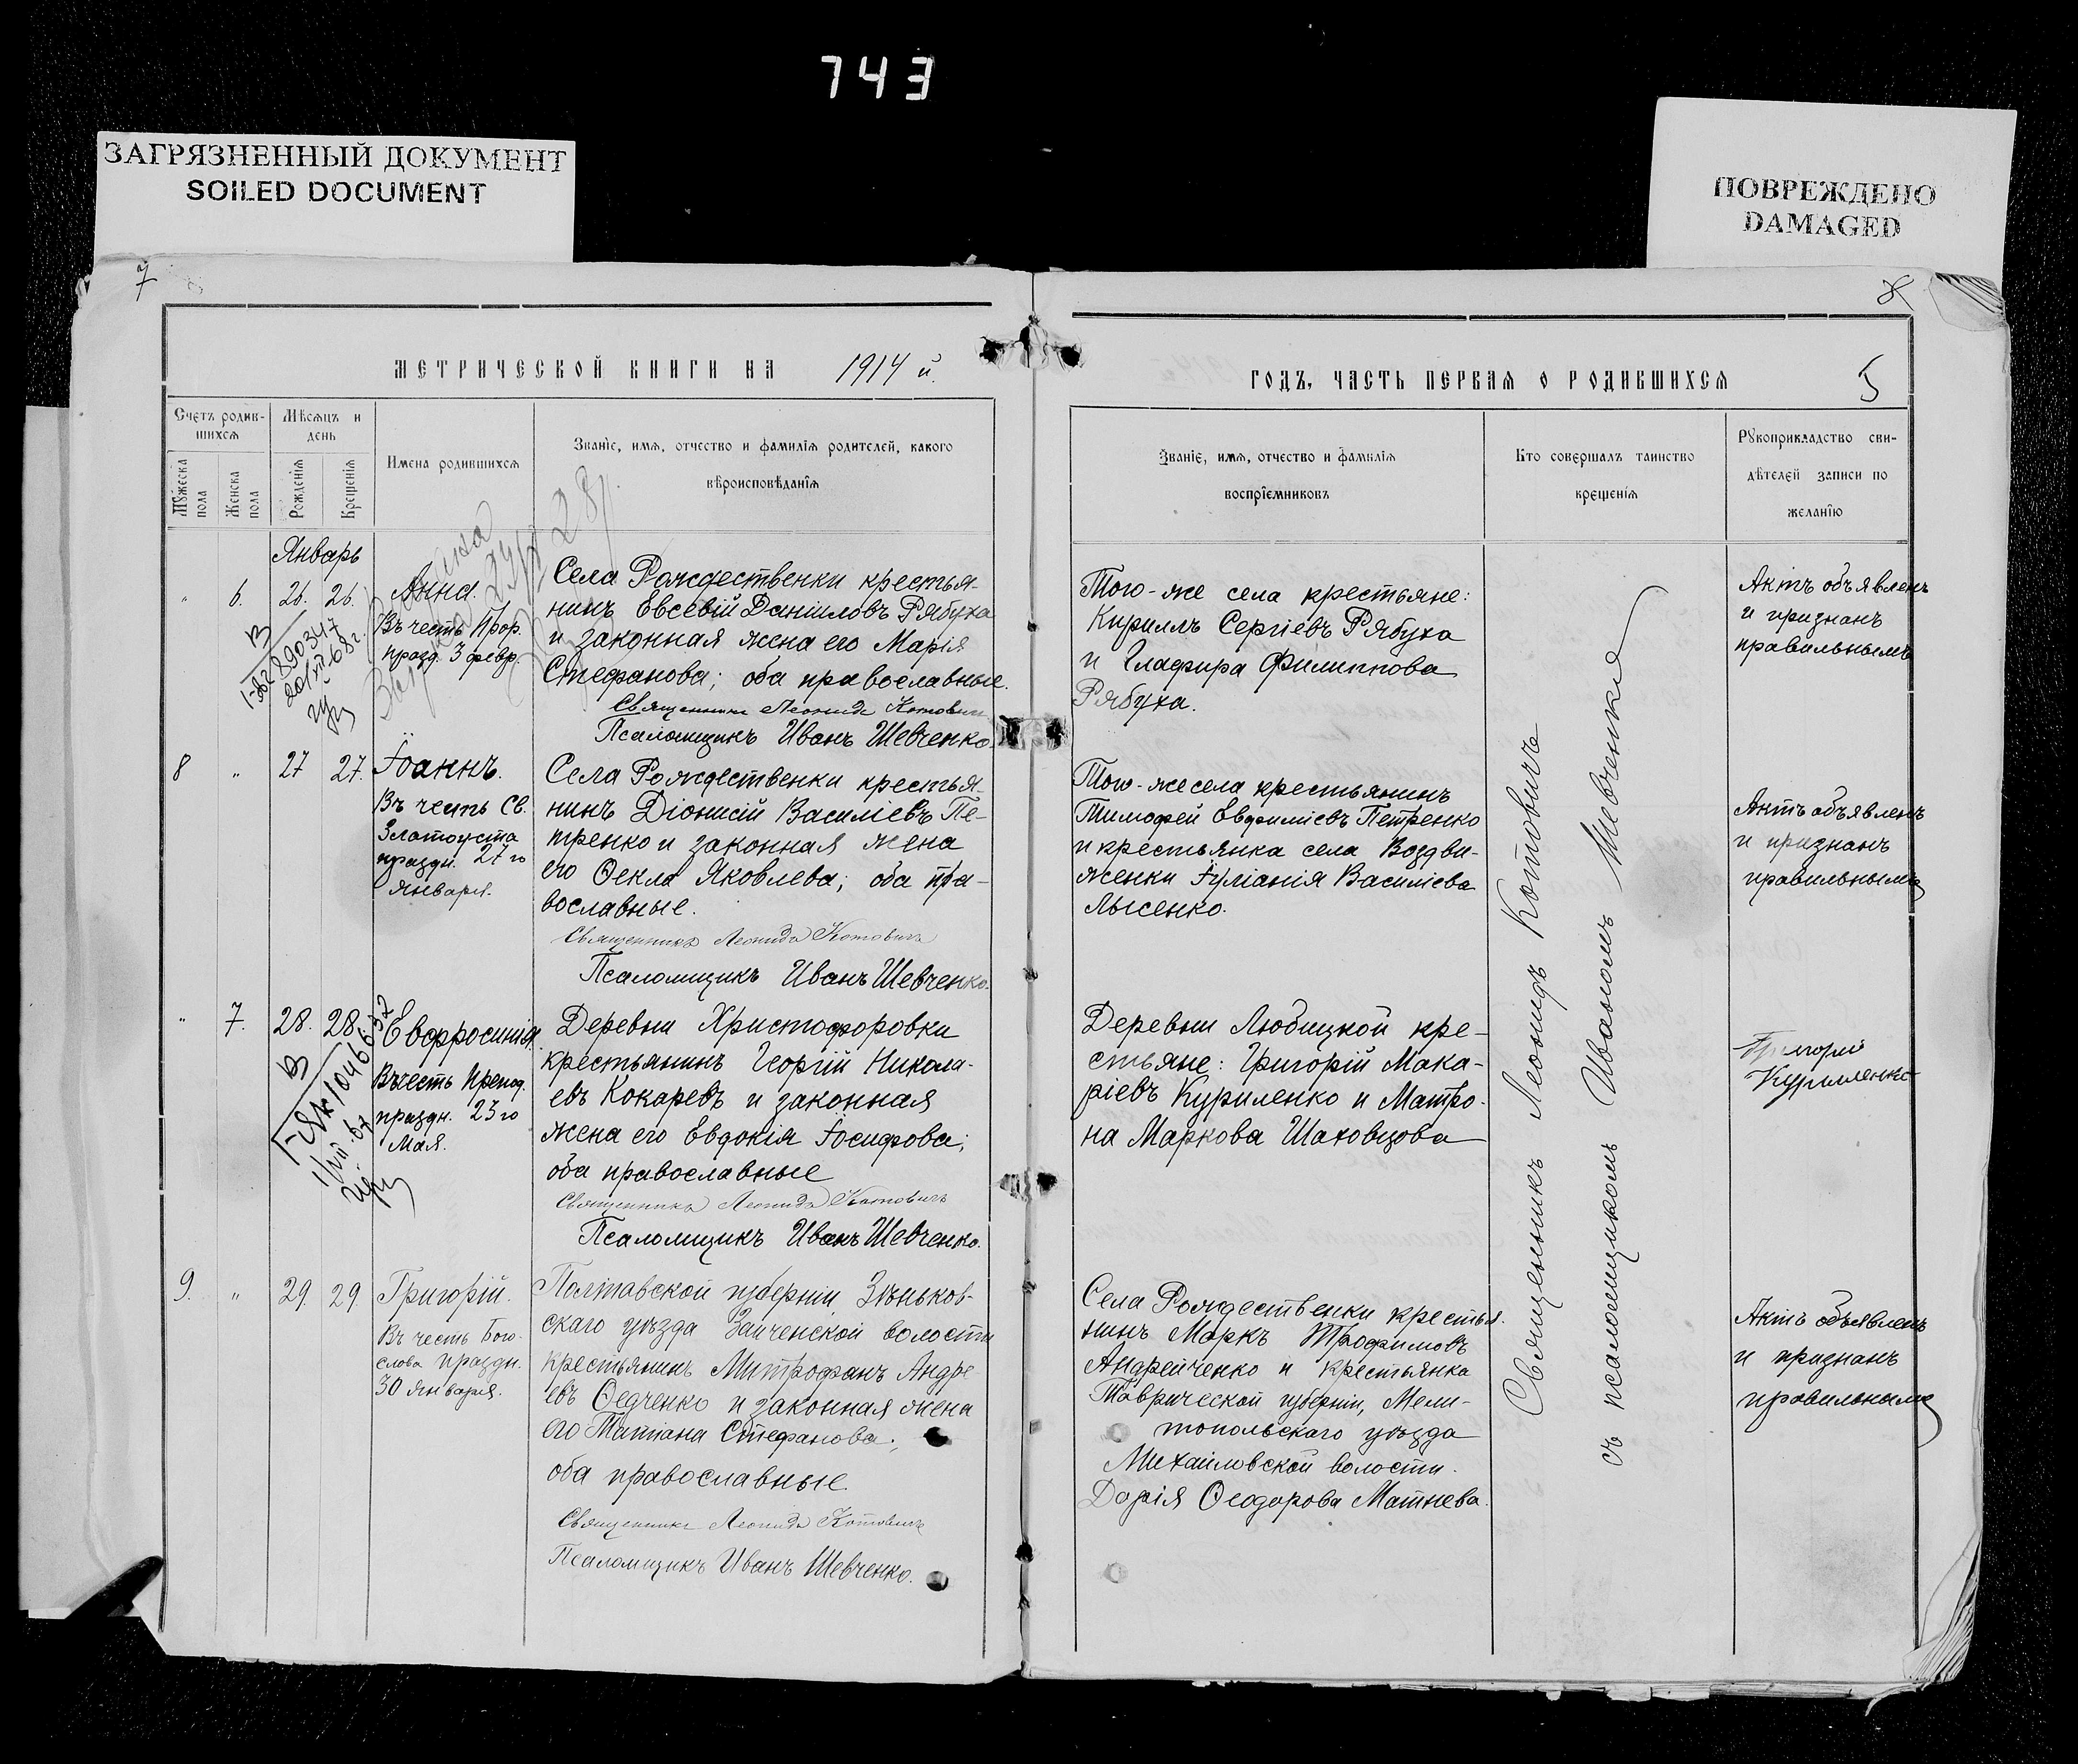 743
ЗАГРЯЗНЕННЫЙ ДОКУМЕНТ
SOILED DOCUMENT
ПОВРЕЖДЕНО
DAMAGED
7
8
МЕТРИЧЕСКОЙ КНИГИ НА 1914 й.
Счетъ родив-
шихся
Мѣсяцъ и
день
Мужеска
пола
Женска
пола
Рожденія
Крещенія
Имена родившихся
Званіе, имя, отчество и фамилія родителей, какого
вѣроисповѣданія
ГОДЪ, ЧАСТЬ ПЕРВАЯ О РОДИВШИХСЯ
5
Званіе, имя, отчество и фамилія
воспріемниковъ
Кто совершалъ таинство
крещенія
Рукоприкладство сви-
дѣтелей записи по
желанію
Январь
" 6. 26. 26.
Анна.
Въ честь Прор.
празд. 3 февр.
Села Рождественки крестья-
нинъ Евсевій Даніиловъ Рябуха
и законная жена его Марія
Стефанова; оба православные.
Священникъ Леонидъ Котовичъ
Псаломщикъ Иванъ Шевченко.
Того-же села крестьяне:
Кириллъ Сергіевъ Рябуха
и Гладира Филиппова
Рябуха.
Актъ объявленъ
и признанъ
правильнымъ
8 " 27 27.
Іоаннъ.
Въ честь Св.
Златоуста
праздн. 27го
Января.
Села Рождественки крестья-
нинъ Діонисій Василіевъ Пе-
тренко и законная жена
его Ѳекла Яковлева; оба пра-
вославные.
Священникъ Леонидъ Котовичъ
Псаломщикъ Иванъ Шевченко.
Того-же села крестьянинъ
Тимофей Евфиміевъ Петренко
и крестьянка села Воздви-
женки Іуліанія Василіева
Лысенко.
Актъ объявленъ
и признанъ
правильнымъ
" 7. 28. 28.
Евфросинія.
Въ честь Препод.
праздн. 23го
Мая.
Деревни Христофоровки
крестьянинъ Георгій Никола-
евъ Кокаревъ и законная
жена его Евдокія Іосифова;
оба православные
Священникъ Леонидъ Котовичъ
Псаломщикъ Иванъ Шевченко.
Деревни Любицкой кре-
стьяне: Григорій Мака-
ріевъ Куриленко и Матро-
на Маркова Шаховцова
Григорій
Куриленко
9. " 29. 29
Григорій.
Въ честь Бого-
слова праздн.
30 января.
Полтавской губерніи, Зѣньков-
скаго уѣзда Заиченской волости
крестьянинъ Митрофанъ Андре
евъ Ѳедченко и законная жена
его Татіана Стефанова;
оба православные.
Священникъ Леонидъ Котовичъ
Псаломщикъ Иванъ Шевченко.
Села Рождественки крестья-
нинъ Маркъ Трофимовъ
Андрейченко и крестьянка
Таврической губерніи, Мели-
топольскаго уѣзда
Михайловской волости.
Дарія Ѳеодорова Матнева.
Актъ объявленъ
и признанъ
правильнымъ
Священникъ Леонидъ Котовичъ
съ псаломщикомъ Иваномъ Шевченко